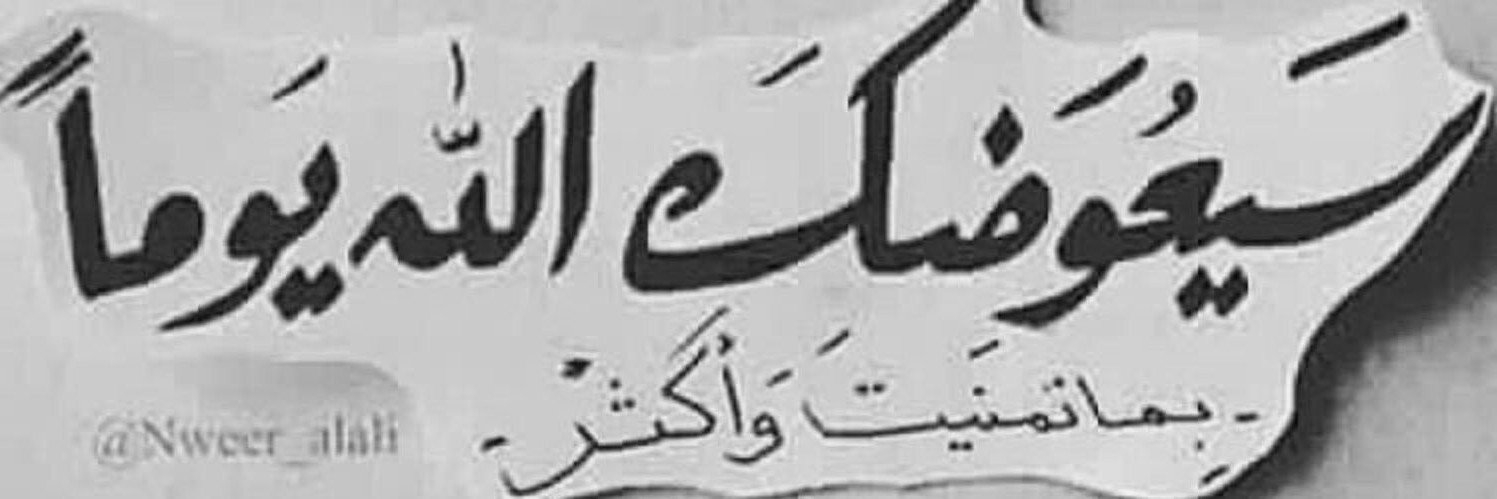 سَيعُوَضكَ اللّٰه يَوماً
- بِما تمَنيتَ وَأكَثرْ -
@Nweer_alali